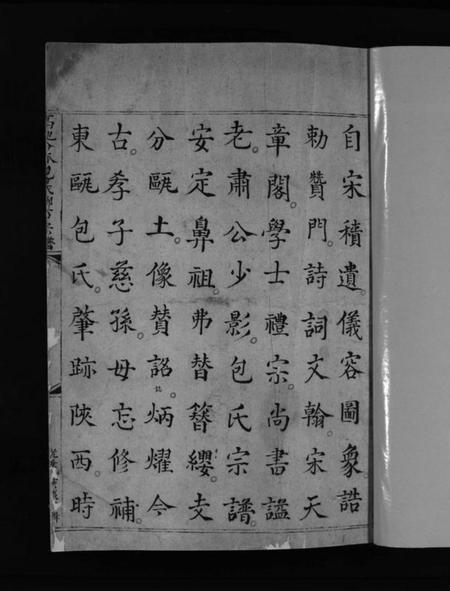 自宋積遺。儀容圖象。誥
勅贊門。詩詞文翰。宋天
章閣。學士禮宗。尚書謚
老。肅公少影。包氏宗譜。
安定鼻祖。弗替簪纓。支
分甌土。像贊詔。炳燿今
古。孝子慈孫。毋忘修補。
東甌包氏。肇跡陝西。時